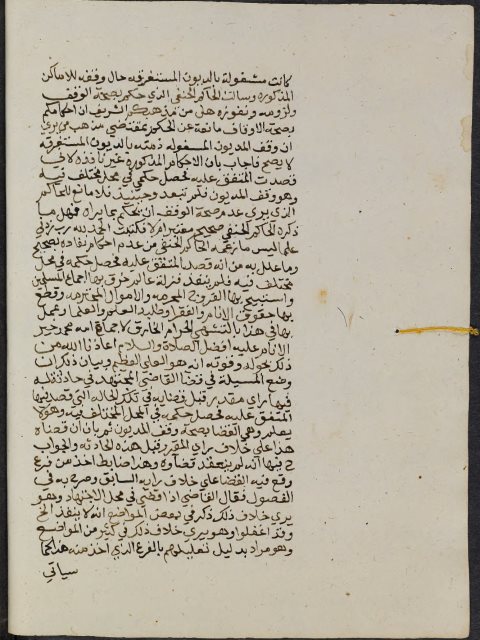 كانت مشغولة بالديون المستغرقه حال وقفه للاماكن
المذكوره وسالت الحاكم الحنفي الذي حكم بصحة الوقف
ولزومه ونفوذه هل من مذهبكم الشريف ان احكامكم
بصحة الاوقاف مانعة عن الحكم بمقتضي مذهب من يري
ان وقف المديون المشغوله ذمته بالديون المستغرقه
لا يصح فاجاب بان الاحكام المذكوره غير نافذه لاني
قصدت المتفق عليه فحصل حكمي في محل مختلف فيه
وهو وقف المديون فلم ينفذ وحينئذ فلا مانع للحاكم
الذي يري عدم صحة الوقف ان يحكم بما يراه فهل ما
ذكره الحاكم الحنفي صحيح معتبر ام لا فكتبت الحمد لله رب زدني
علما ليس ما زعمه الحاكم الحنفي من عدم احكام نفاده بصحيح
وما علل به من انه قصد المتفق عليه فحصل حكمه في محل
مختلف فيه فلم ينفذ فزلة عالم خرق بها اجماع المسلمين
واستبيح بها الفروج المحرمه والاموال المحترمه وقطع
بها حقوق الانام والفقرا وطلبة العلم والعلما وعمل
بها في هذا بالتشهي الحرام الخارق لاجماع امه محمد خير
الانام عليه افضل الصلاة والسلام اعاذنا الله من
ذلك بحوله وقوته انه هو العلي العظيم وبيان ذلك ان
وضع المسيلة في قضا القاضي المجتهد في حادثة له
فيها راي مقدر قبل قضايه في تلك الحادثه التي قصد فيها
المتفق عليه فحصل حكمه في المحل المختلف فيه وهو لا
يعلم وهي القضا بصحة وقف المديون ثم بان ان قضاه
هذا علي خلاف رايه المقرر قبل هذه الحادثه والجواب
ح فيها انه لم ينعقد قضاوه وهذا ضابط اخذ من فرع
وقع فيه القضا علي خلاف رايه السابق وصرح به في
الفصول فقال القاضي اذا قضي في محل الاجتهاد وهو
يري خلاف ذلك ذكر في بعض المواضع انه لا ينفذ الخ
وقد اغفلوا وهو يري خلاف ذلك في كثير من المواضع
وهو مراد بدليل تعليلهم بالفرع الذي اخذ منه هذا كما
سياتي